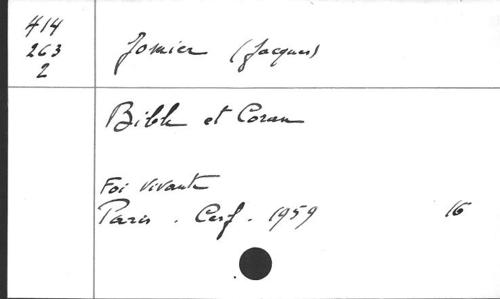 414
263
2
Jomier (Jacques)
Bible et Coran
Foi vivante
Paris . Cerf . 1959 16